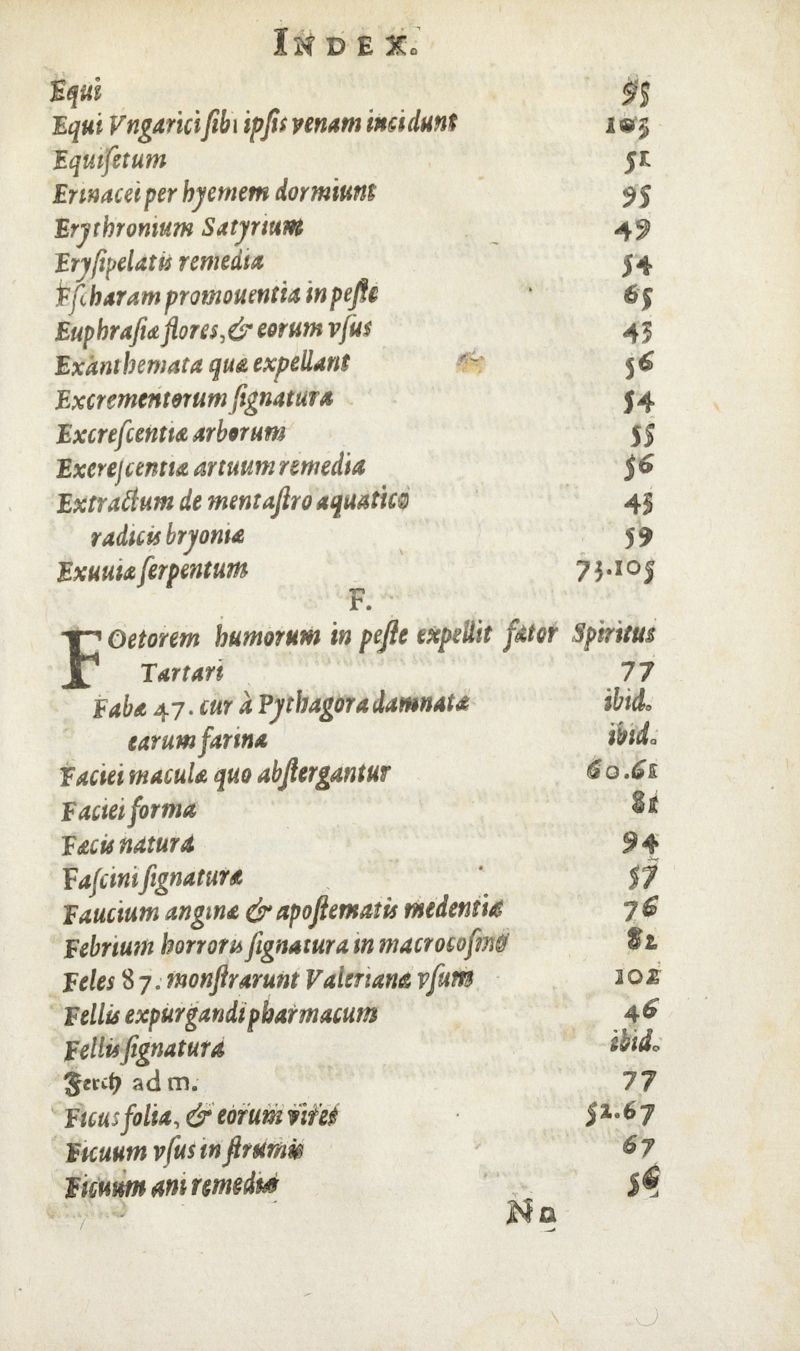 INDEX.
Equi 95
Equi Vngarici sibi ipsis venam incidunt 103
Equisetum 51
Erinacei per hyemem dormiunt 95
Erythronium Satyrium 49
Erysipelatis remedia 54
Escharam promouentia in peste 65
Euphrasiæ flores, & eorum vsus 43
Exanthemata quæ expellant 56
Excrementorum signatura 54
Excrescentiæ arborum 55
Excrescentiæ artuum remedia 56
Extractum de mentastro aquatico 43
radicis bryoniæ 59
Exuuiæ serpentum 73.105
F.
FOetorem humorum in peste expellit fætor Spiritus
Tartari 77
Fabæ 47. cur à Pythagora damnatæ ibid.
earum farina ibid.
Faciei maculæ quo abstergantur 60.61
Faciei forma 81
Fæcis natura 94
Fascini signaturæ 57
Faucium anginæ & apostematis medentia 76
Febrium horroris signatura in macrocosmo 82
Feles 87. monstrarunt Valerianæ vsum 102
Fellis expurgandi pharmacum 46
Fellis signatura ibid.
Ferch ad m. 77
Ficus folia, & eorum vires 52.67
Ficuum vsus in strumis 67
Ficuum ani remedia 56
Nn